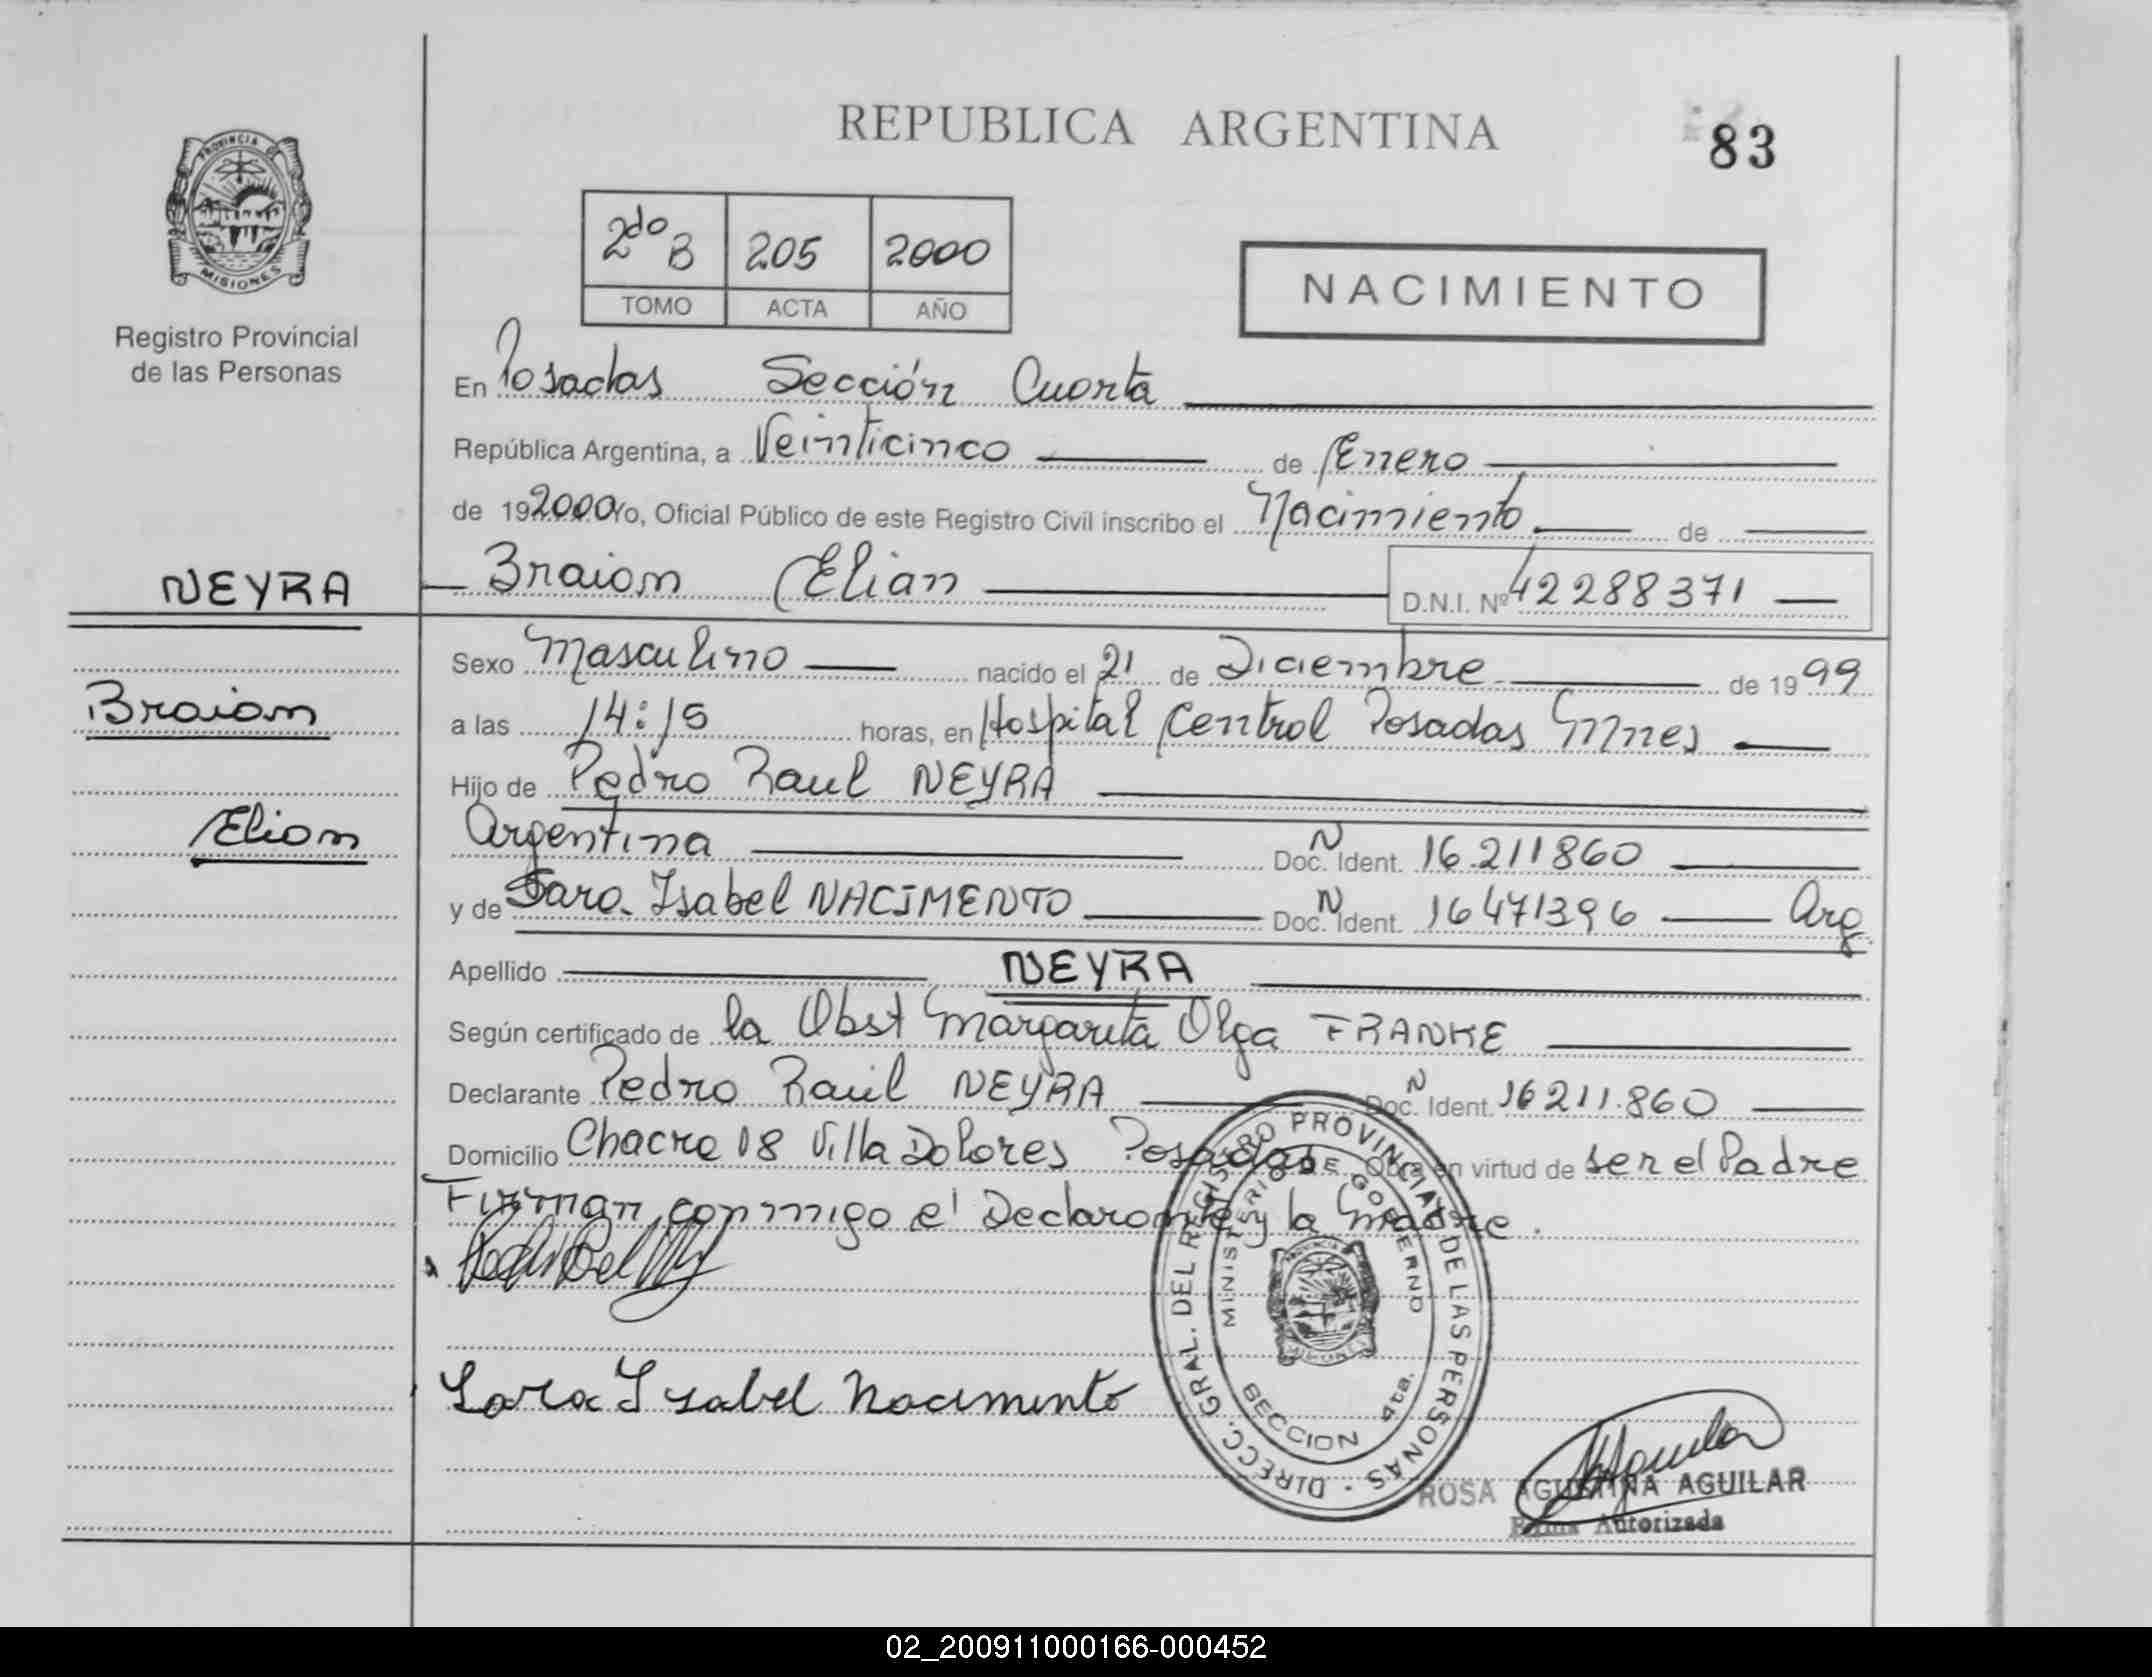 REPUBLICA ARGENTINA
83
PROVINCIA DE
MISIONES
Registro Provincial
de las Personas
2do B 205 2000
TOMO ACTA AÑO
NACIMIENTO
En Posadas Sección Cuarta
República Argentina, a Veinticinco de Enero
de 192000 Yo, Oficial Público de este Registro Civil inscribo el Nacimiento de
NEYRA
Braian Elian D.N.I. Nº 42288371
Sexo Masculino nacido el 21 de Diciembre de 19 99
Braian
a las 14:15 horas, en Hospital Central Posadas Mnes
Hijo de Pedro Raul NEYRA
Elian
Argentina N Doc. Ident. 16.211860
y de Sara Isabel NACIMENTO N Doc. Ident. 16471396 Arg.
Apellido NEYRA
Según certificado de la Obst Margarita Olga FRANKE
Declarante Pedro Raúl NEYRA N Doc. Ident. 16211.860
Domicilio Chacra 08 Villa Dolores Posadas Obra en virtud de ser el Padre
Firman conmigo el Declarante y la Madre.
DIRECC. GRAL. DEL REGISTRO PROVINCIAL DE LAS PERSONAS
MINISTERIO DE GOBIERNO
SECCION 4ta.
Sara Isabel Nacimento
ROSA AGUSTINA AGUILAR
Firma Autorizada
02_200911000166-000452